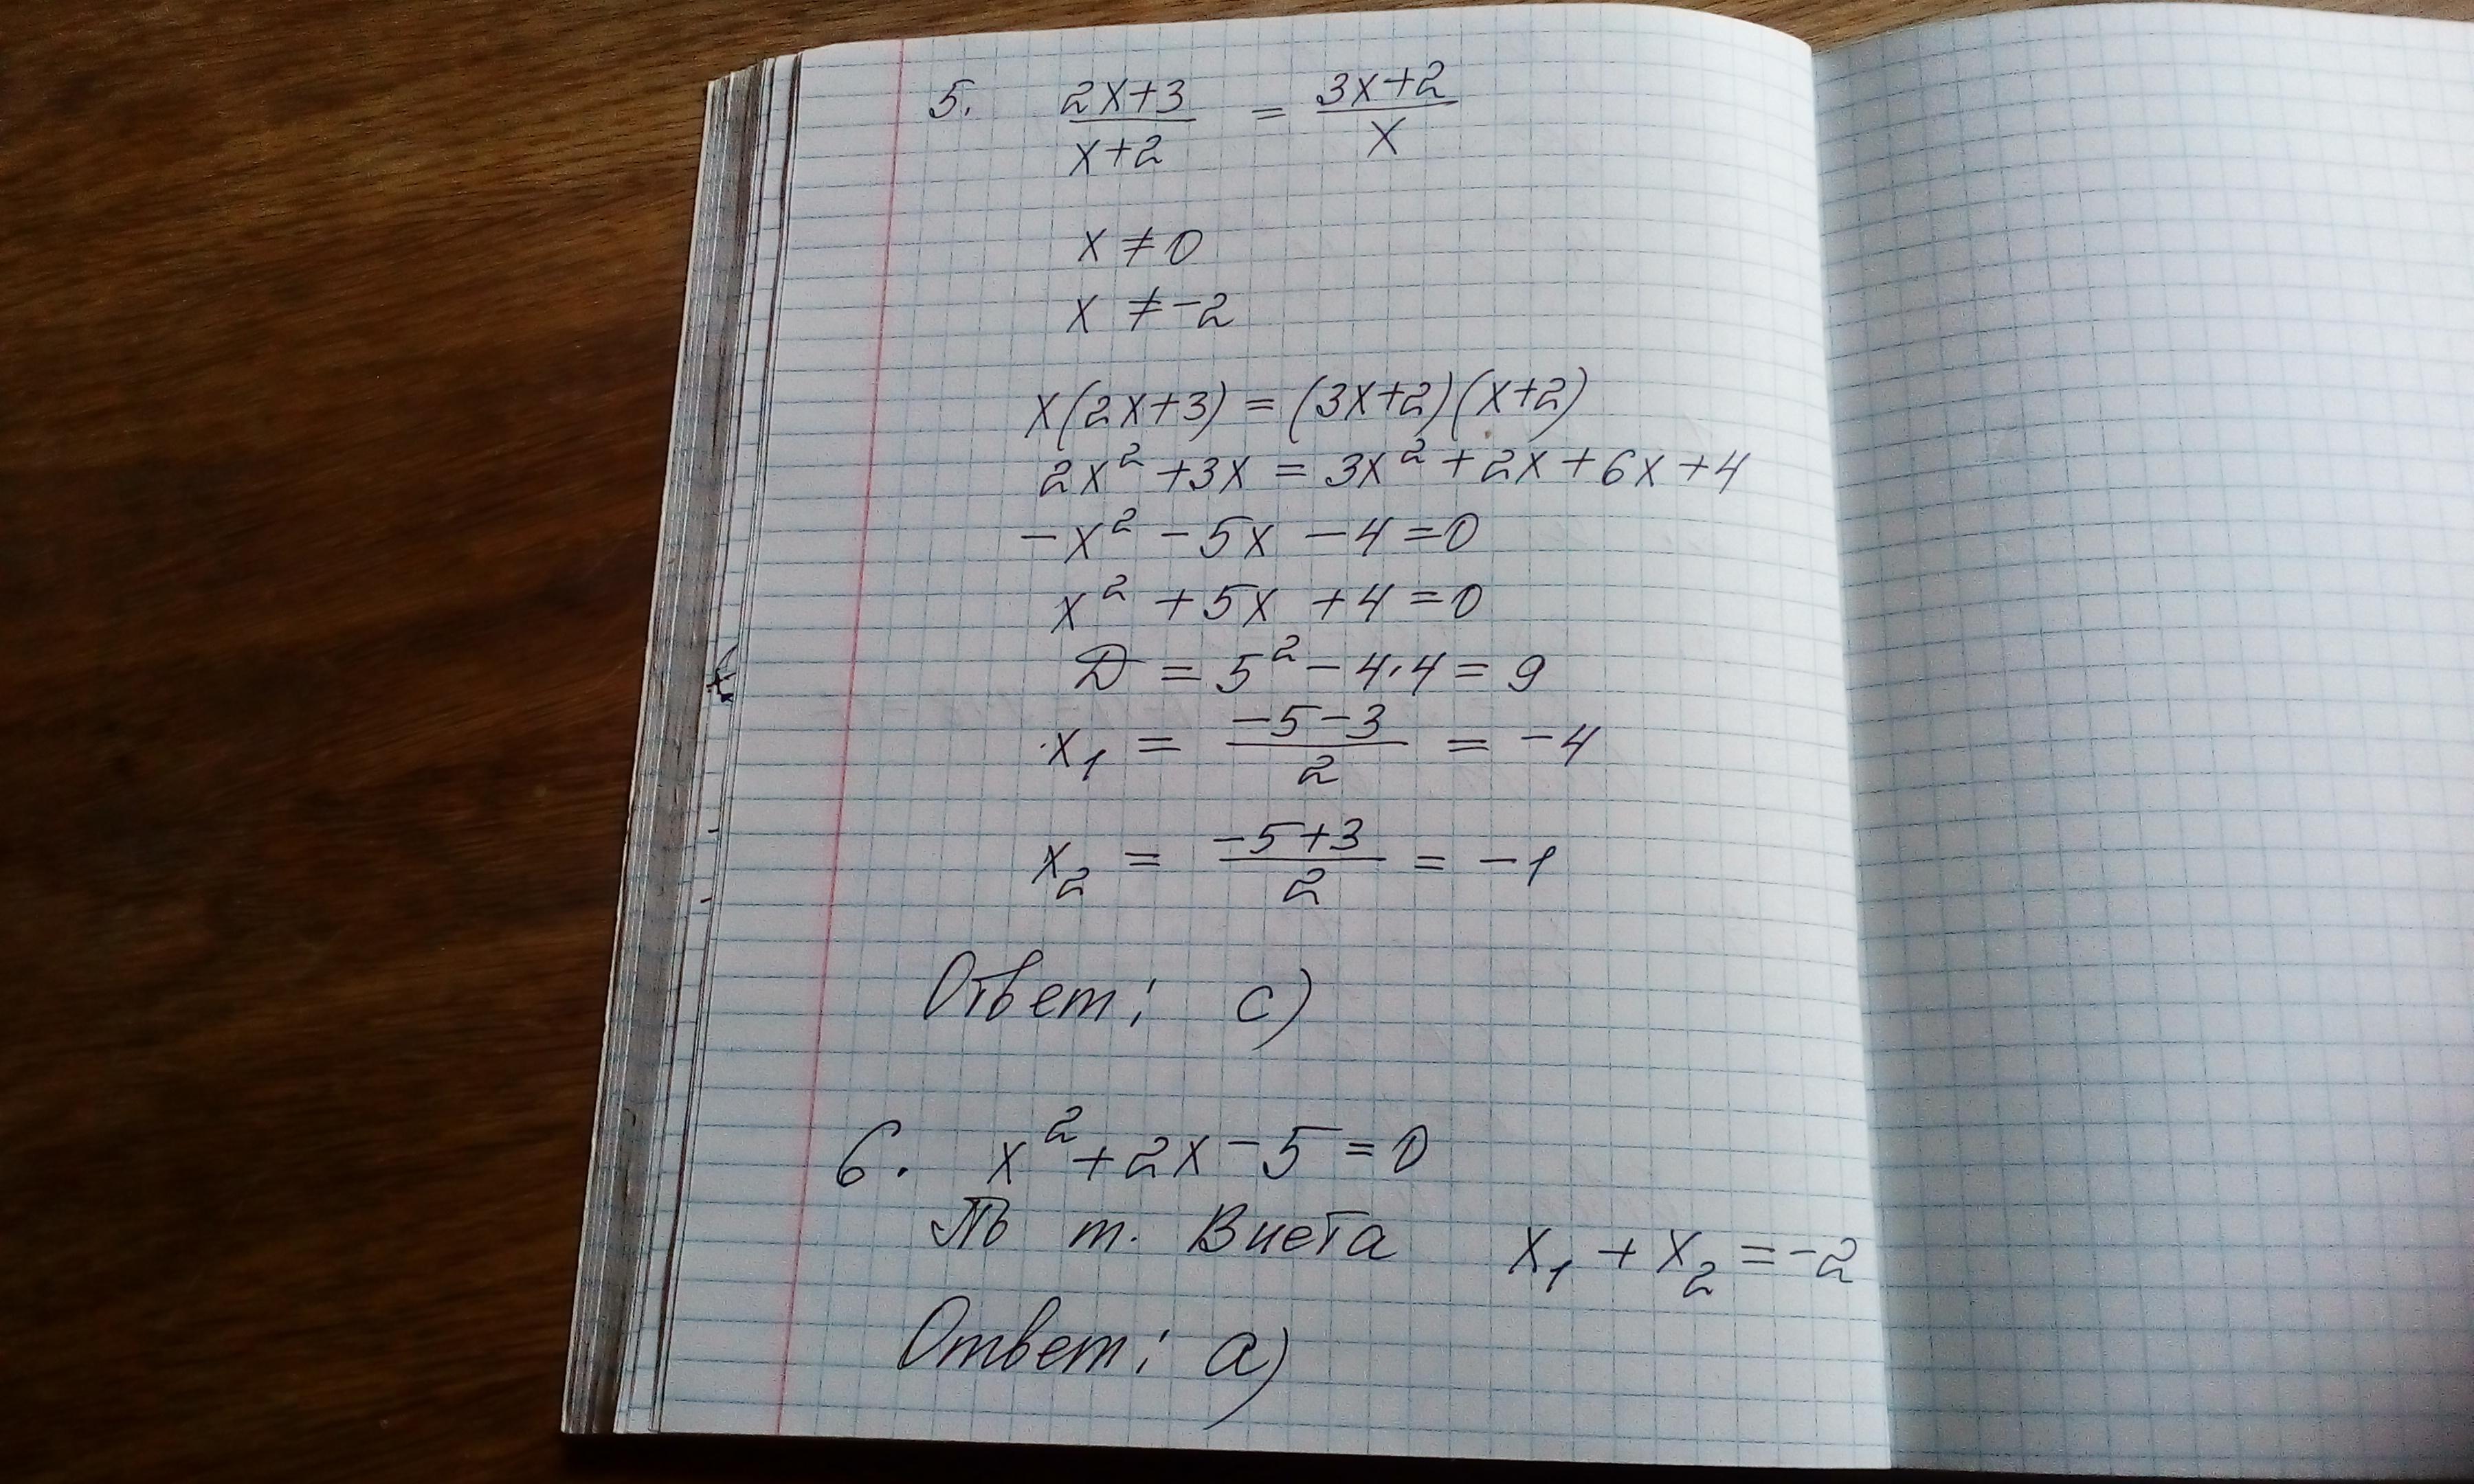 5. (2x+3)/(x+2) = (3x+2)/x
x ≠ 0
x ≠ -2
x(2x+3) = (3x+2)(x+2)
2x² +3x = 3x² + 2x + 6x + 4
-x² - 5x - 4 = 0
x² + 5x + 4 = 0
Д = 5² - 4·4 = 9
x₁ = (-5-3)/2 = -4
x₂ = (-5+3)/2 = -1
Ответ: c)
6. x² + 2x - 5 = 0
По т. Виета x₁ + x₂ = -2
Ответ: a)